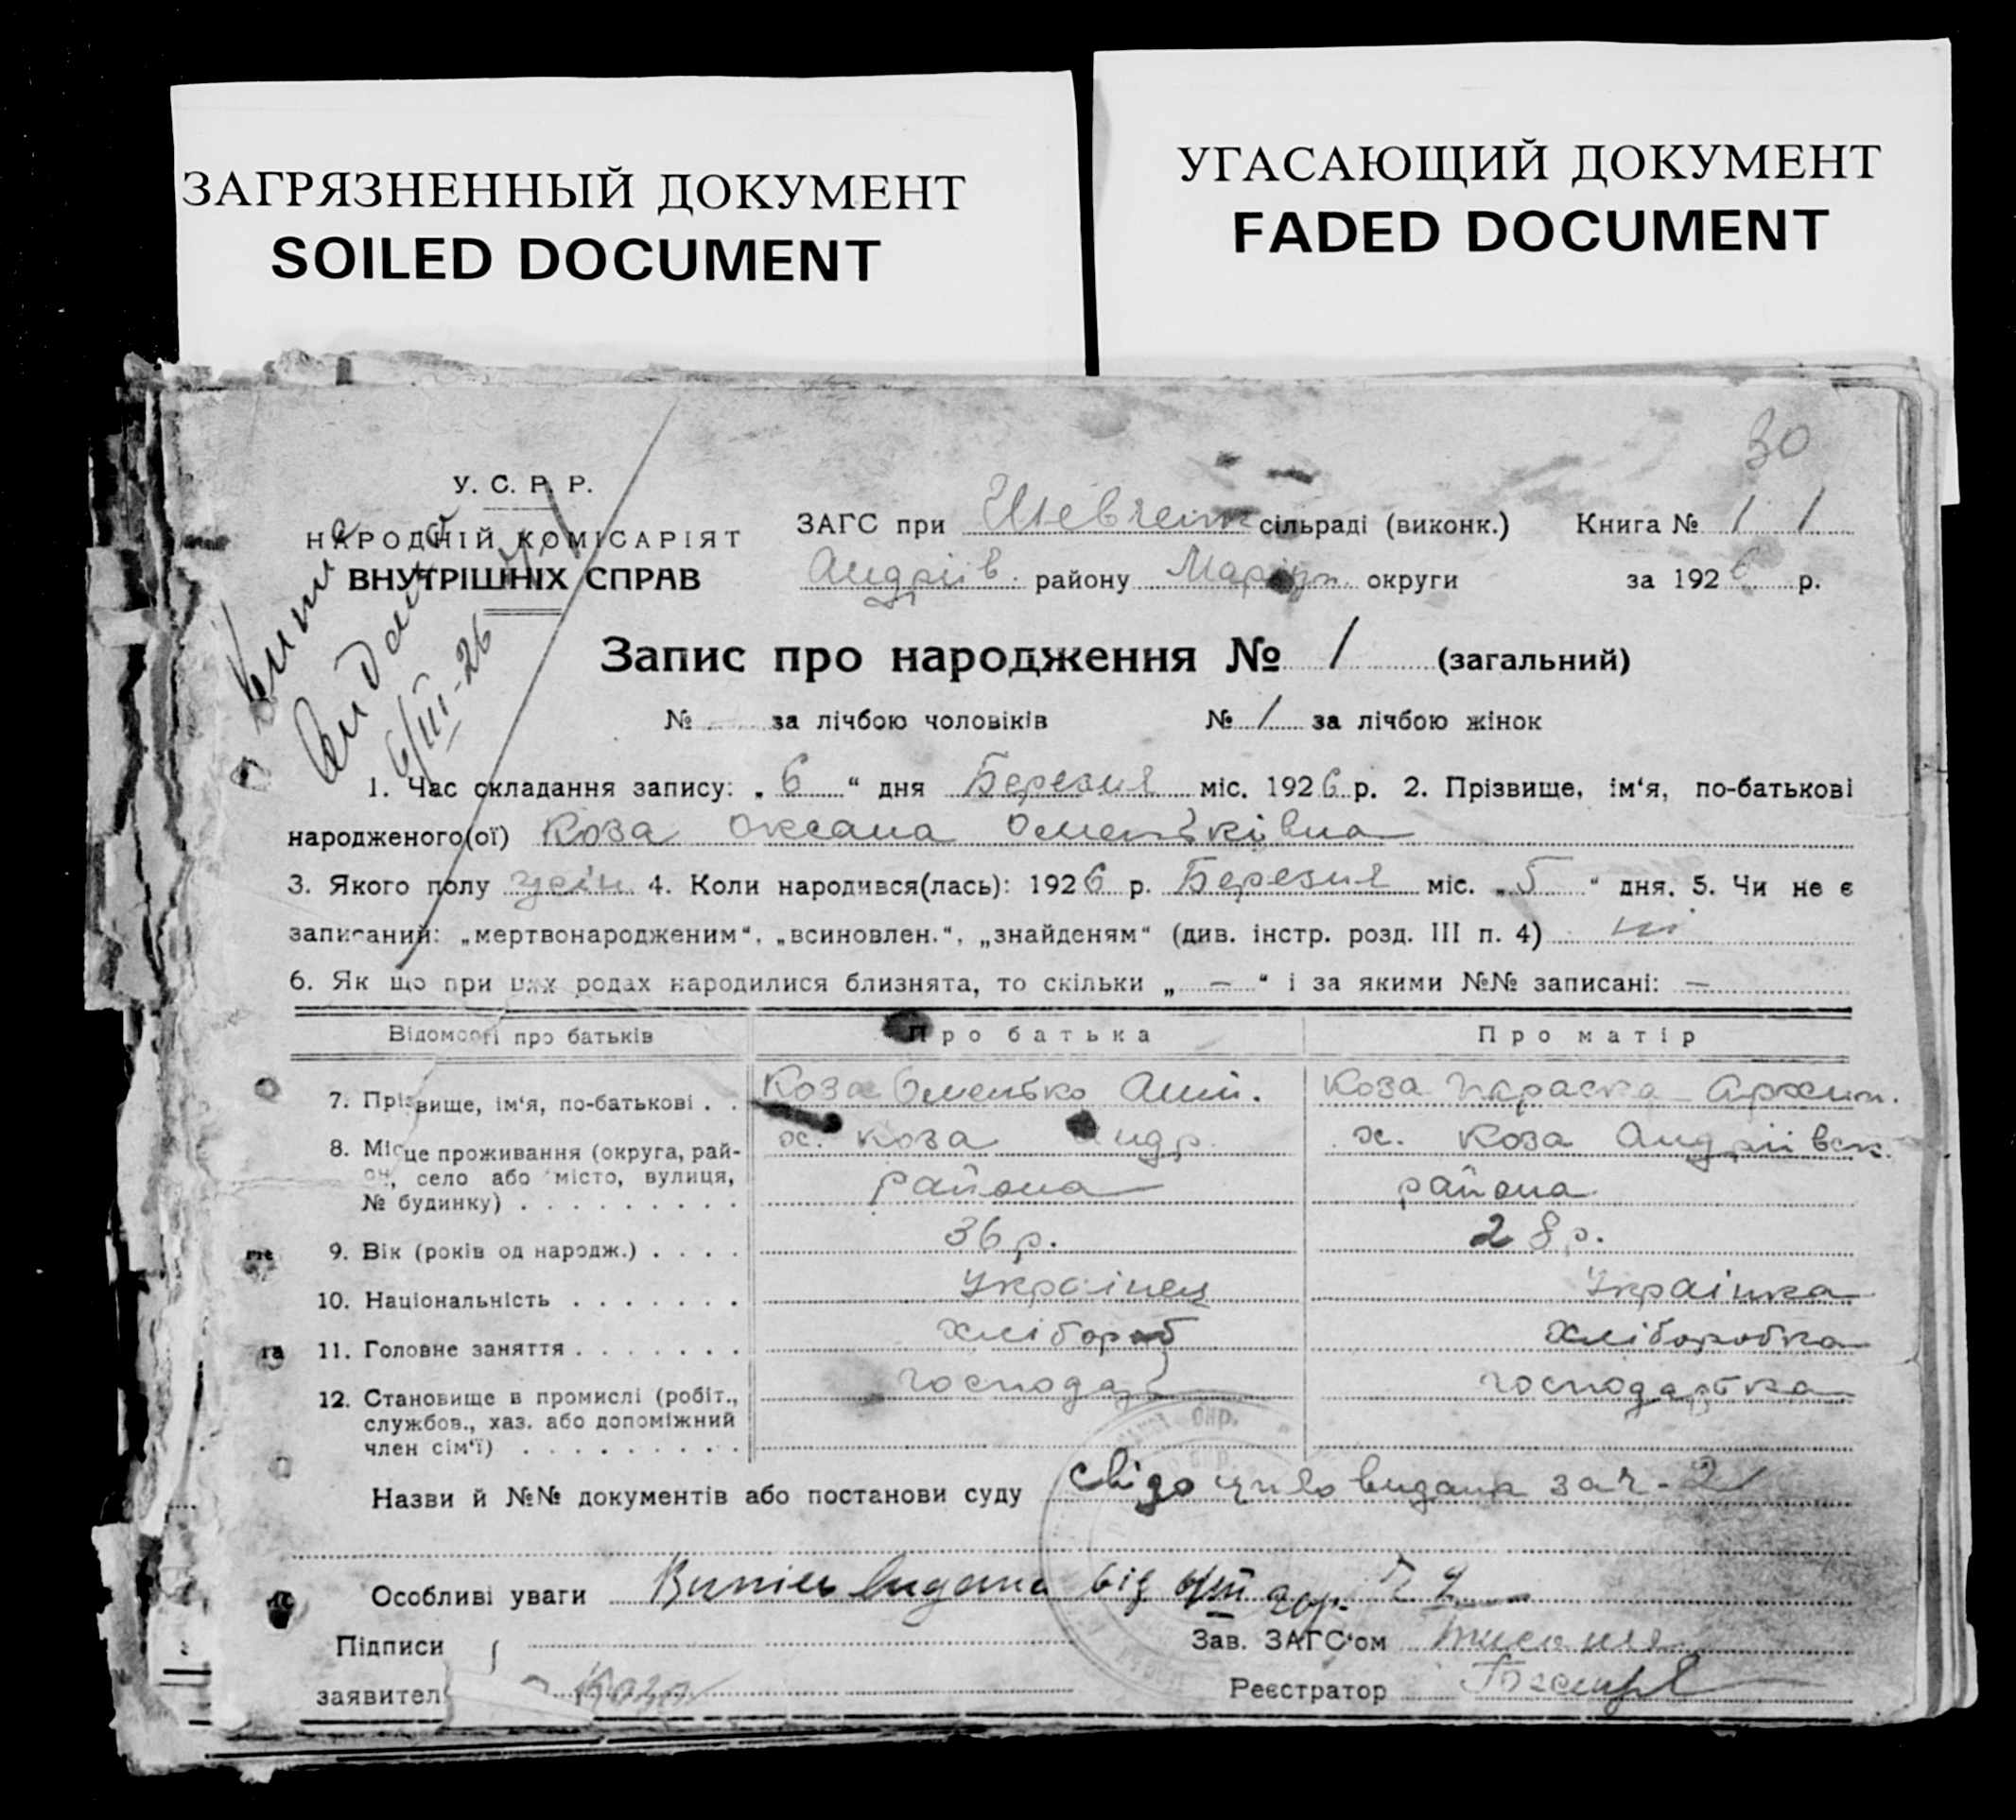 ЗАГРЯЗНЕННЫЙ ДОКУМЕНТ
SOILED DOCUMENT
УГАСАЮЩИЙ ДОКУМЕНТ
FADED DOCUMENT
30
У. С. Р. Р.
НАРОДНІЙ КОМІСАРІЯТ
ВНУТРІШНІХ СПРАВ
6/III-26
ЗАГС при Шевченк сільраді (виконк.) Книга № 1 1
Андріїв. району Маріуп. округи за 1926 р.
Запис про народження № 1 (загальний)
№ за лічбою чоловіків № 1 за лічбою жінок
1. Час складання запису: „ 6 “ дня Березня міс. 1926 р. 2. Прізвище, ім‘я, по-батькові
народженого(ої) Коза Оксана Омельківна
3. Якого полу жін 4. Коли народився(лась): 1926 р. Березня міс. „ 5 “ дня. 5. Чи не є
записаний: „мертвонародженим“, „всиновлен.“, „знайденям“ (див. інстр. розд. III п. 4) ні
6. Як що при цих родах народилися близнята, то скільки „ — “ і за якими №№ записані: —
Відомості про батьків Про батька Про матір
7. Прізвище, ім‘я, по-батькові . . Коза Омелько Коза Параска Архип.
8. Місце проживання (округа, рай- х. Коза Андр. х. Коза Андріївск.
он, село або місто, вулиця, района района
№ будинку) . . . . . . . . .
9. Вік (років од народж.) . . . . 36 р. 28 р.
10. Національність . . . . . . . Українец Українка
11. Головне заняття . . . . . . . хлібороб хліборобка
12. Становище в промислі (робіт., господар господарка
службов., хаз. або допоміжний
член сім‘ї) . . . . . . . . .
Назви й №№ документів або постанови суду видана за ч-2
Особливі уваги видана від
Підписи Зав. ЗАГС‘ом
заявител Коза Реєстратор